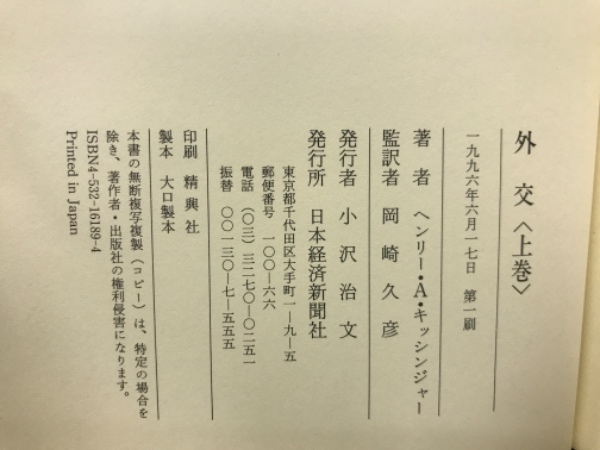 外交〈上巻〉
一九九六年六月一七日　第一刷
著者　ヘンリー・A・キッシンジャー
監訳者　岡崎久彦
発行者　小沢治文
発行所　日本経済新聞社
東京都千代田区大手町一―九―五
郵便番号　一〇〇―六六
電話　（〇三）三二七〇―〇二五一
振替　〇〇一三〇―七―五五五
印刷　精興社
製本　大口製本
本書の無断複写複製（コピー）は、特定の場合を
除き、著作者・出版社の権利侵害になります。
ISBN4-532-16189-4
Printed in Japan